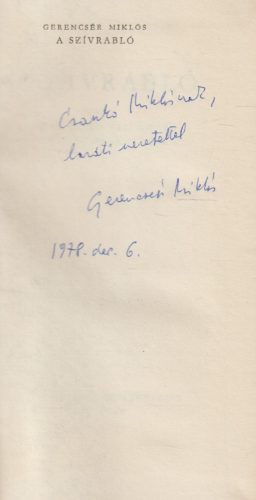 GERENCSÉR MIKLÓS
A SZÍVRABLÓ
Csankó Miklósnak,
baráti szeretettel
Gerencsér Miklós
1978. dec. 6.